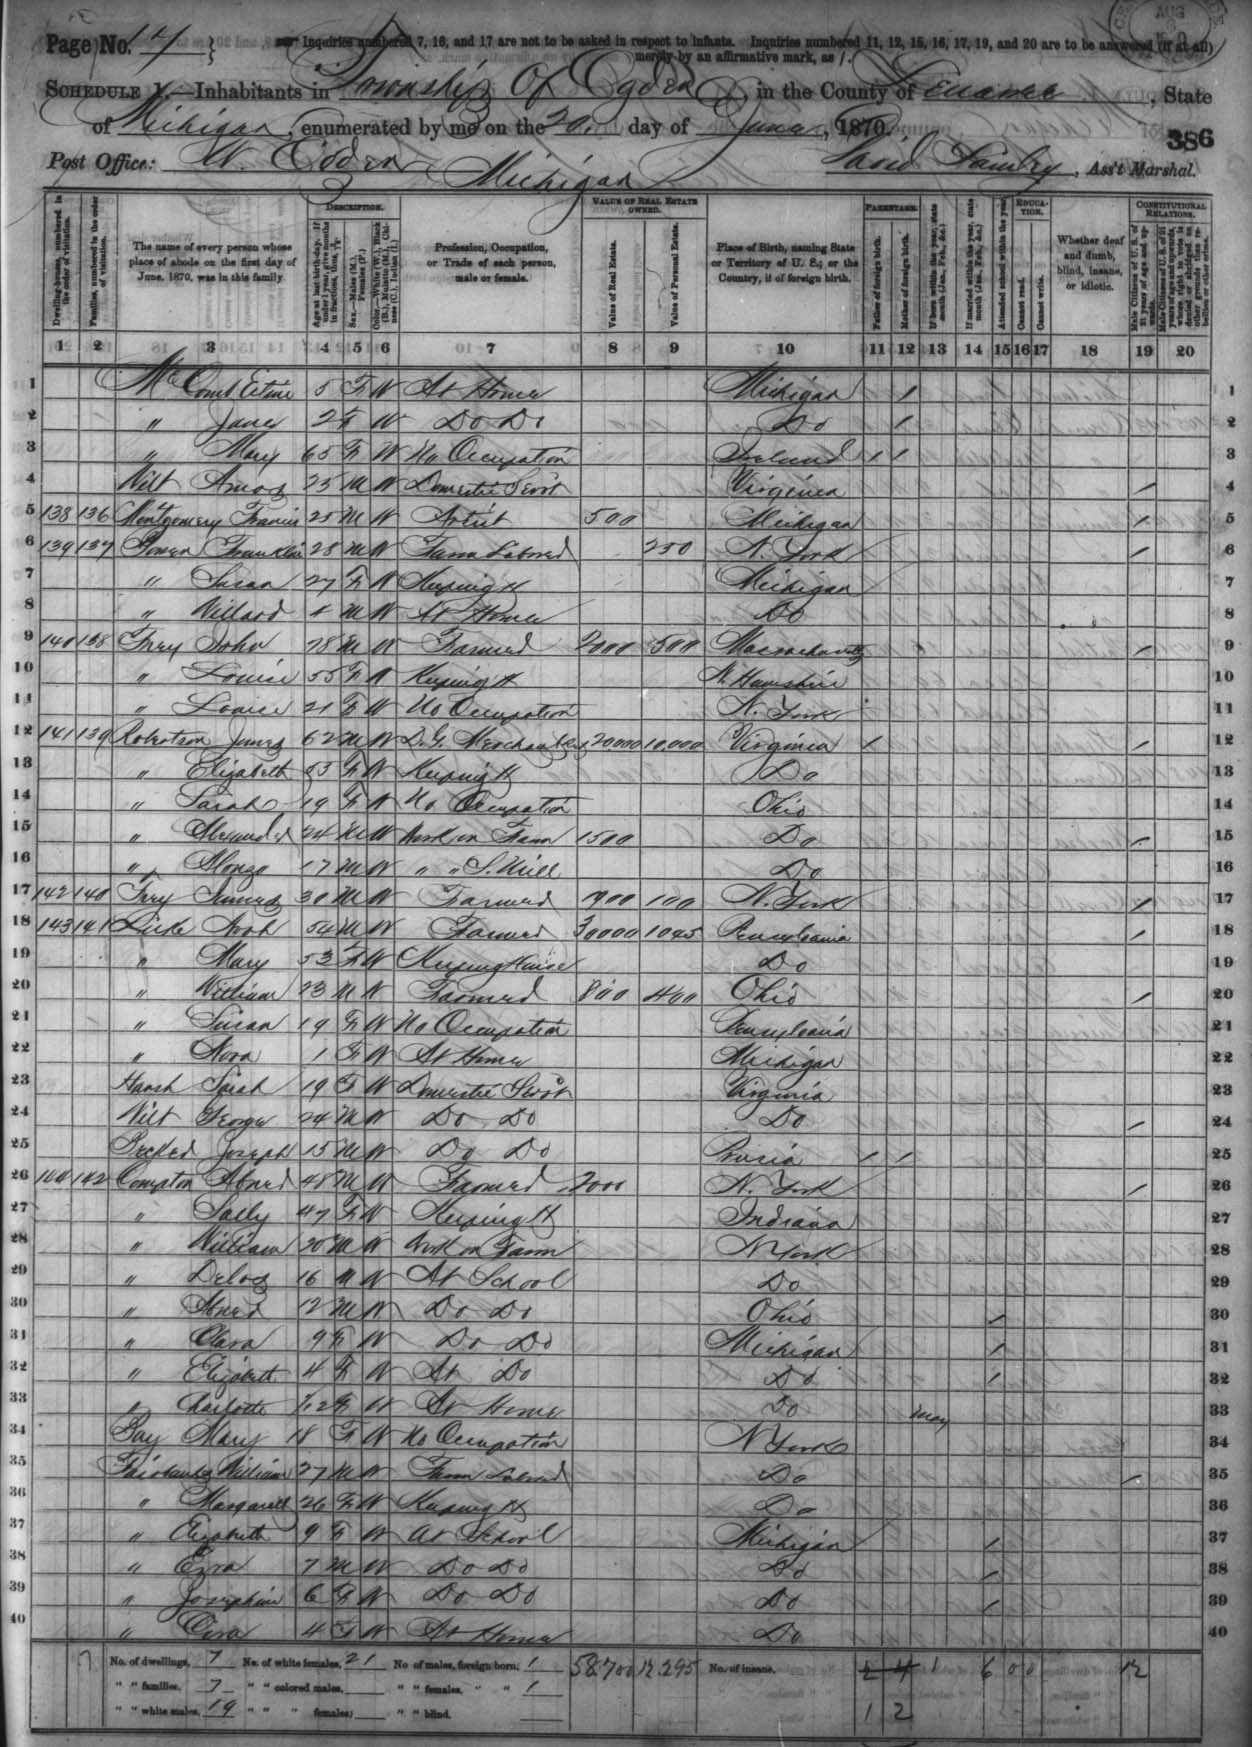 Page No. 17
Inquiries numbered 7, 16, and 17 are not to be asked in respect to infants. Inquiries numbered 11, 12, 15, 16, 17, 19, and 20 are to be answered (if at all) merely by an affirmative mark, as /.
AUG
Schedule 1.—Inhabitants in Township Of Ogden, in the County of Lenawee, State
of Michigan, enumerated by me on the 20. day of June, 1870.
386
Post Office: W. Ogden Michigan
David, Ass't Marshal.
Dwelling-houses, numbered in the order of visitation.
Families, numbered in the order of visitation.
The name of every person whose place of abode on the first day of June, 1870, was in this family.
Description.
Age at last birth-day. If under 1 year, give months in fractions, thus, 3/12
Sex.—Males (M.), Females (F.)
Color.—White (W.), Black (B.), Mulatto (M.), Chinese (C.), Indian (I.)
Profession, Occupation, or Trade of each person, male or female.
Value of Real Estate Owned.
Value of Real Estate.
Value of Personal Estate.
Place of Birth, naming State or Territory of U. S.; or the Country, if of foreign birth.
Parentage.
Father of foreign birth.
Mother of foreign birth.
If born within the year, state month (Jan., Feb., &c.)
If married within the year, state month (Jan., Feb., &c.)
Attended school within the year.
Education.
Cannot read.
Cannot write.
Whether deaf and dumb, blind, insane, or idiotic.
Constitutional Relations.
Male Citizens of U. S. of 21 years of age and upwards.
Male Citizens of U. S. of 21 years of age and upwards, whose right to vote is denied or abridged on other grounds than rebellion or other crime.
1 2 3 4 5 6 7 8 9 10 11 12 13 14 15 16 17 18 19 20
1 McComb 5 F W At Home Michigan / 1
2 " Jane 2 F W Do Do Do / 2
3 " Mary 65 F W No Occupation Ireland / / 3
4 Wilt Amos 25 M W Domestic Serv't Virginia / 4
5 138 136 Montgomery Francis 25 M W Artist 500 Michigan / 5
6 139 137 Franklin 28 M W Farm Labored 250 N. York / 6
7 " Susan 27 F W Keeping H Michigan 7
8 " Willard M W At Home Do 8
9 140 138 Frey John 78 M W Farmer 2000 500 Massachusetts / 9
10 " Louise 55 F W Keeping H N. Hampshire 10
11 " Louise 21 F W No Occupation N. York 11
12 141 139 Robertson James 62 M W D. G. Merchant 20000 10,000 Virginia / / 12
13 " Elizabeth 53 F W Keeping H Do 13
14 " Sarah 19 F W No Occupation Ohio 14
15 " Alexander 24 M W Work on Farm 1500 Do / 15
16 " Alonzo 17 M W " " S. Mill Do 16
17 142 140 Frey James 30 M W Farmer 1900 100 N. York / 17
18 143 141 Noah 54 M W Farmer 30000 1045 Pennsylvania / 18
19 " Mary 53 F W Keeping House Do 19
20 " William 23 M W Farmer 800 400 Ohio / 20
21 " Susan 19 F W No Occupation Pennsylvania 21
22 " Nora 1 F W At Home Michigan 22
23 Harsh Sarah 19 F W Domestic Serv't Virginia 23
24 Wilt George 24 M W Do Do Do / 24
25 Joseph 15 M W Do Do Prusia / / 25
26 144 142 Compton Abner 48 M W Farmer 2000 N. York / 26
27 " Sally 47 F W Keeping H Indiana 27
28 " William 20 M W Work on Farm N York 28
29 " Delos 16 M W At School Do 29
30 " Abner 12 M W Do Do Ohio / 30
31 " Clara 9 F W Do Do Michigan / 31
32 " Elizabeth 4 F W At Do Do / 32
33 " Charlotte 1/12 F W At Home Do May 33
34 Mary 18 F W No Occupation N York 34
35 Fairbanks William 27 M W Farm Labored Do / 35
36 " Margarett 26 F W Keeping H Do 36
37 " Elizabeth 9 F W At School Michigan / 37
38 " Ezra 7 M W Do Do Do / 38
39 " Josephine 6 F W Do Do Do / 39
40 " 4 F W At Home Do 40
No. of dwellings, 7 No. of white females, 21 No. of males, foreign born, 1 58.700 12.295 No. of insane, 2 4 1 6 0 0 12
" " families, 7 " " colored males, " " females, " " 1
" " white males, 19 " " " females, " " blind. 1 2